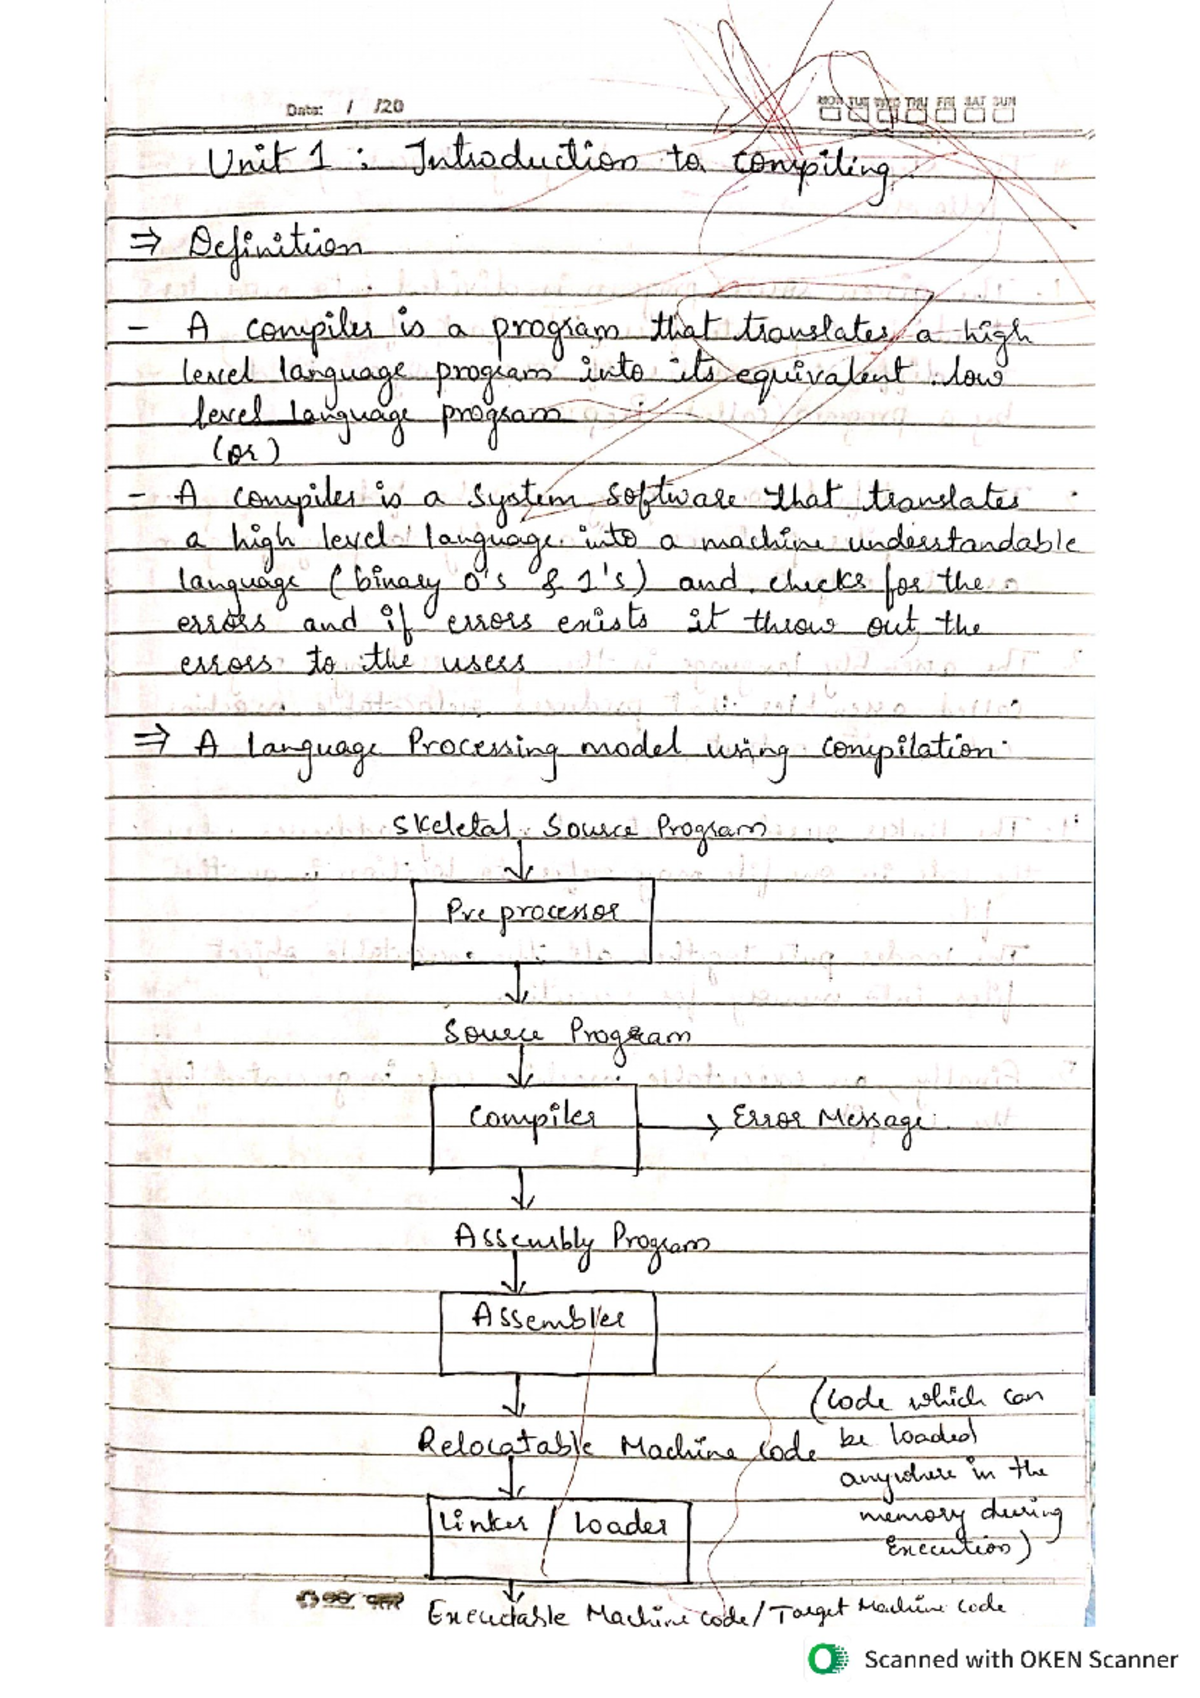 Date: / /20
MON TUE WED THU FRI SAT SUN
Unit 1 : Introduction to compiling.
⇒ Definition
- A compiler is a program that translates a high
level language program into its equivalent low
level language program
(or)
- A compiler is a system software that translates
a high level language into a machine understandable
language (binary 0's & 1's) and checks for the
errors and if errors exists it throw out the
errors to the users
⇒ A language Processing model using compilation:
Skeletal Source Program
Preprocessor
Source Program
Compiler → Error Message
Assembly Program
Assembler
Relocatable Machine code
(code which can
be loaded
anywhere in the
memory during
Execution)
Linker / loader
Executable Machine code/Target Machine code
Scanned with OKEN Scanner